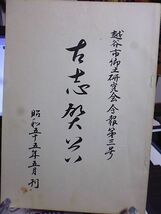 越谷市郷土研究会会報第三号
古志賀谷
昭和五十五年五月刊